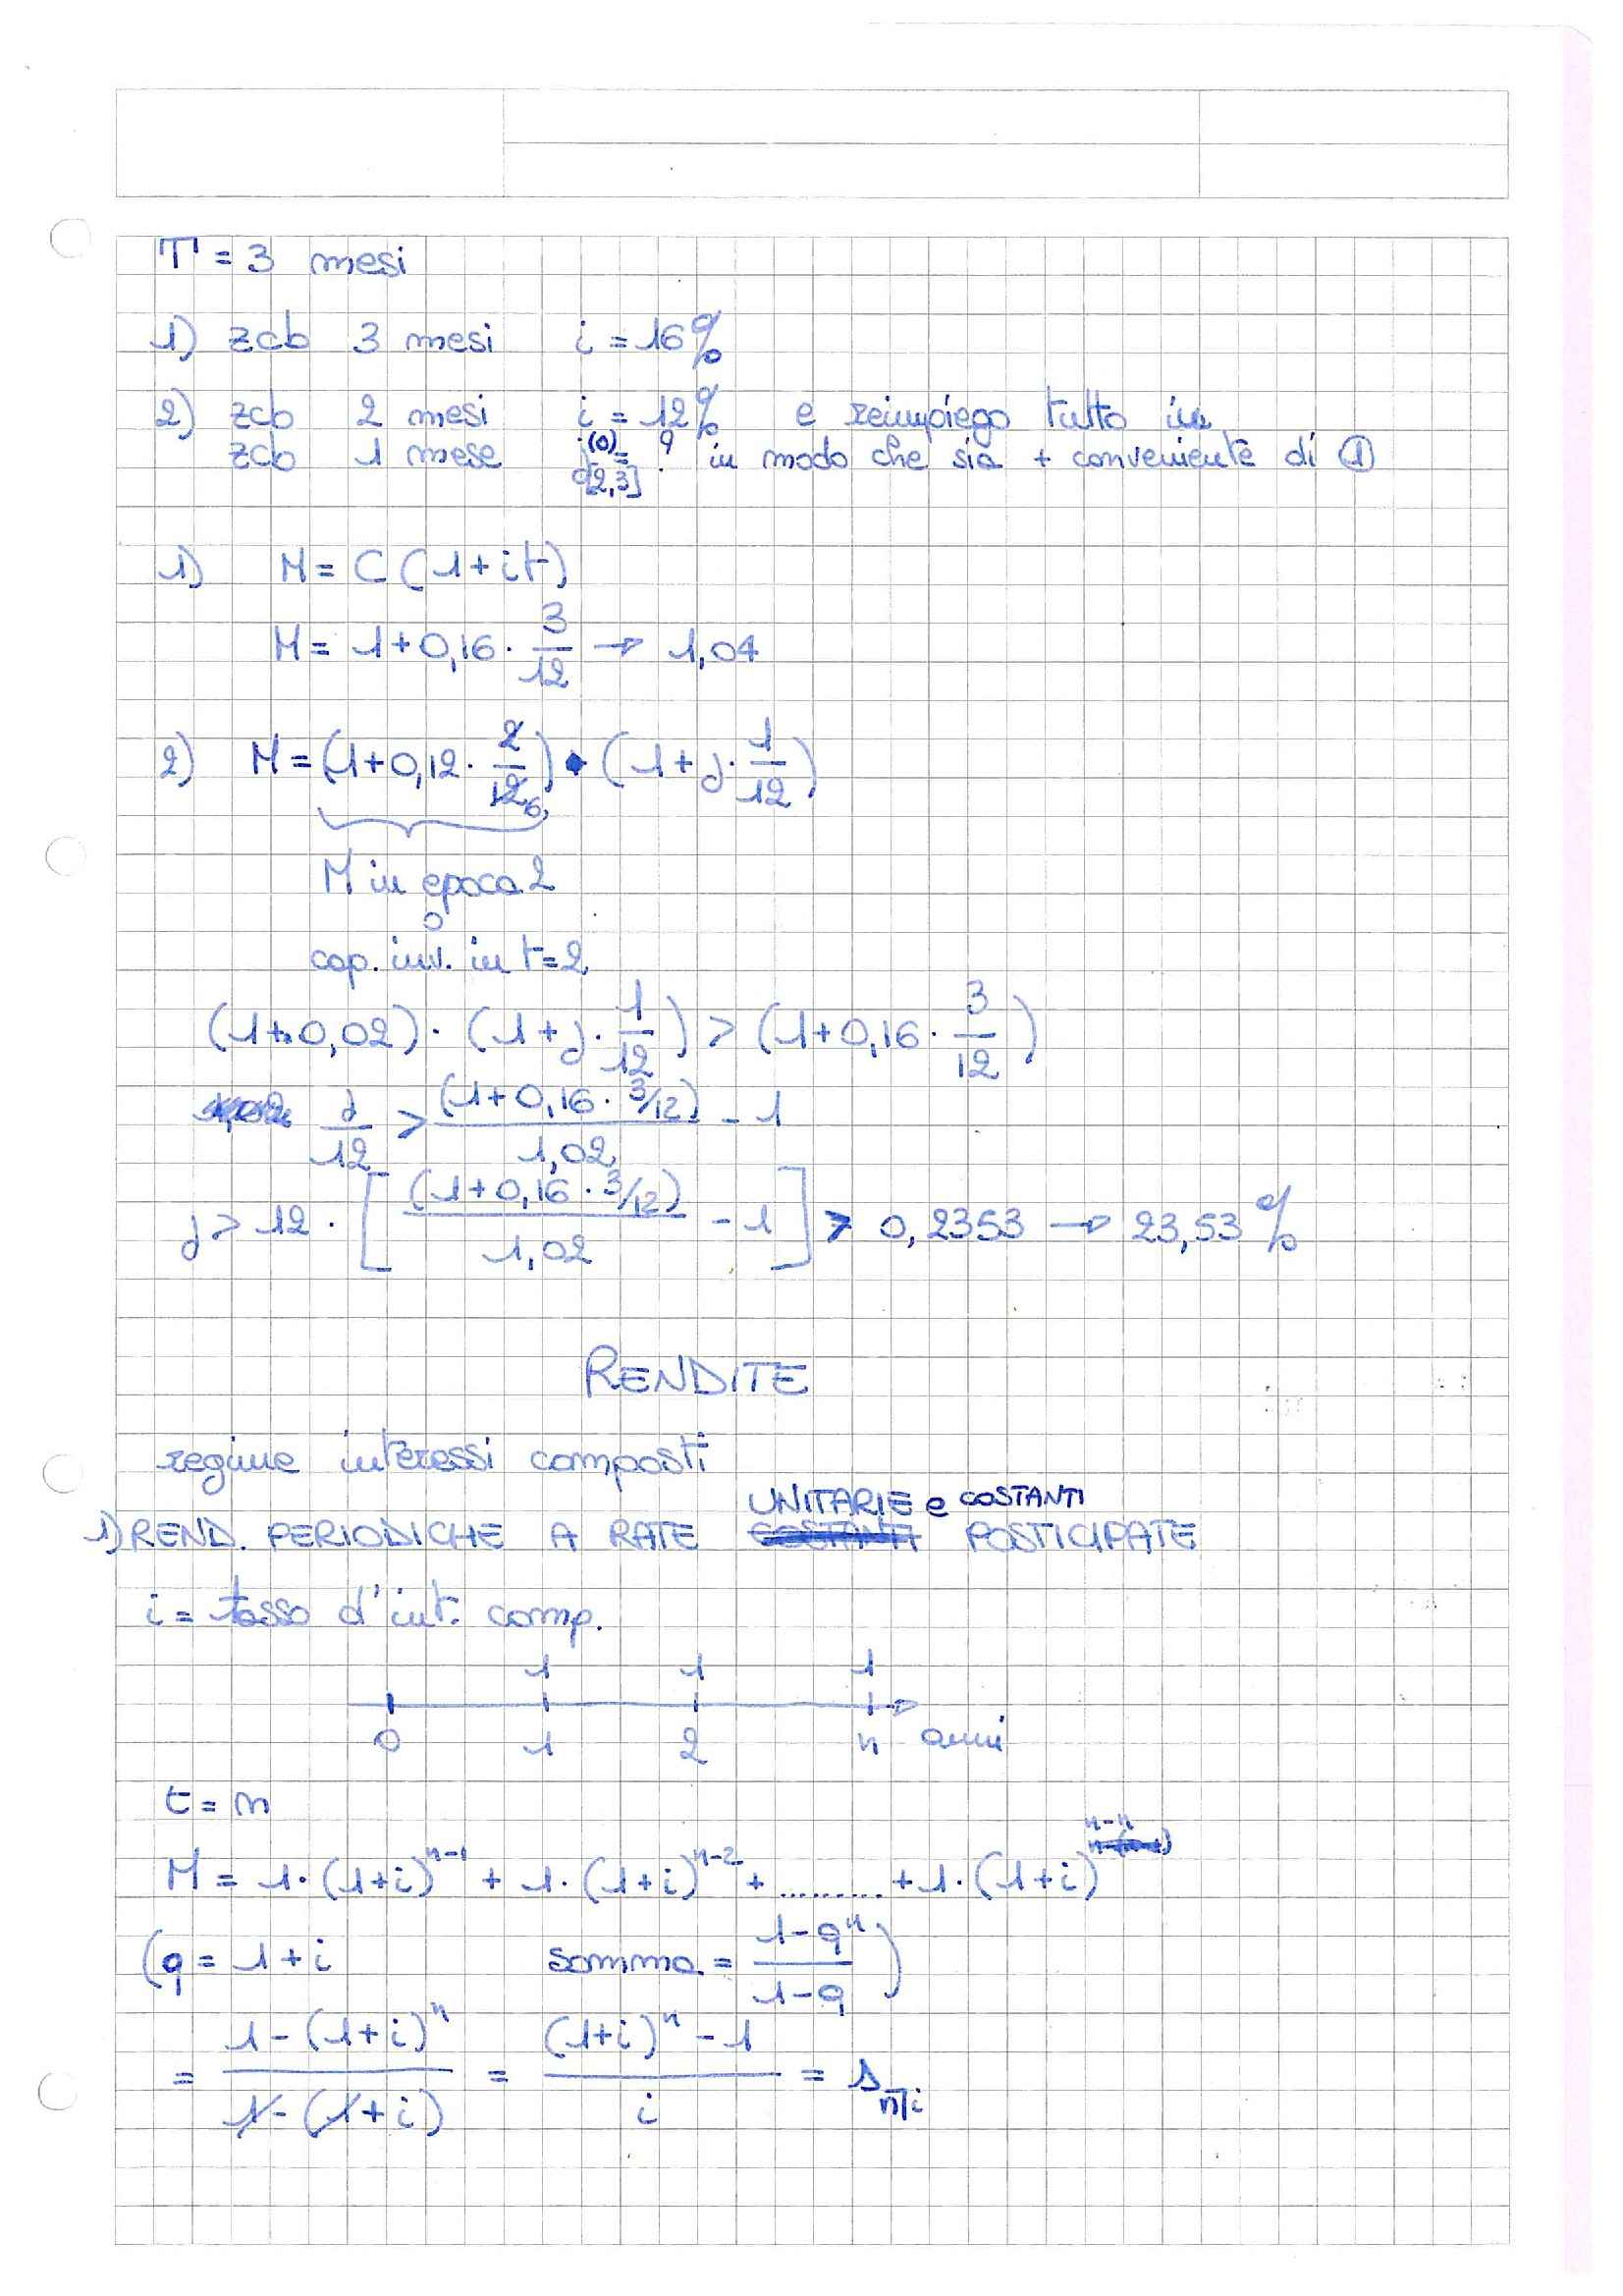 T = 3 mesi
1) zcb 3 mesi i = 16%
2) zcb 2 mesi i = 12% e reimpiego tutto in
zcb 1 mese j^(0)_[2,3] = ? in modo che sia + conveniente di ①
1) M = C (1+it)
M = 1+0,16 · 3/12 → 1,04
2) M = (1+0,12 · 2/12 6) • (1+j · 1/12)
M in epoca 2
o
cap. inv. in t=2
(1+0,02) · (1+j · 1/12) > (1+0,16 · 3/12)
j/12 > (1+0,16 · 3/12)/1,02 - 1
j > 12 · [(1+0,16 · 3/12)/1,02 - 1] > 0,2353 → 23,53%
RENDITE
regime interessi composti
UNITARIE e COSTANTI
1) REND. PERIODICHE A RATE COSTANTI POSTICIPATE
i = tasso d'int. comp.
1 1 1
0 1 2 n anni
t = n
M = 1·(1+i)^n-1 + 1·(1+i)^n-2 + ......... + 1·(1+i)^n-n
(q = 1+i somma = 1-q^n/1-q)
= 1-(1+i)^n/1-(1+i) = (1+i)^n -1/i = s n̅|i